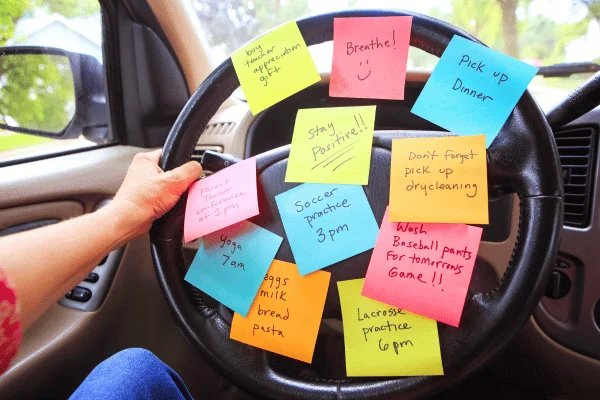 buy
teacher
appreciation
gift
Breathe!
Pick up
Dinner
Stay
Positive!!
Don't Forget
pick up
drycleaning
Parent
Teacher
conference
at 1pm
Soccer
practice
3pm
Wash
Baseball pants
For tomorrows
Game!!
Yoga
7am
eggs
milk
bread
pasta
Lacrosse
practice
6pm